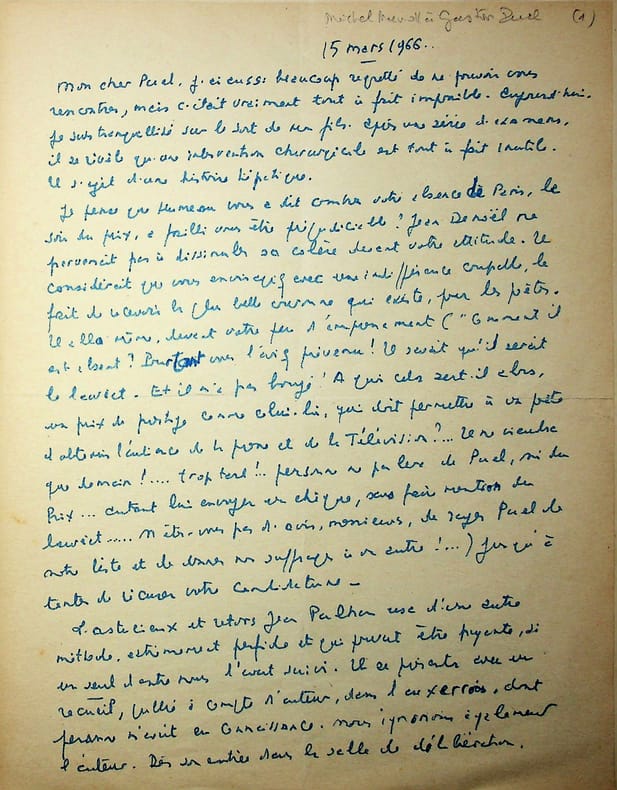 Michel Manoll à Gaston Puel (1)
15 mars 1966..
Mon cher Puel. J'ai aussi beaucoup regretté de ne pouvoir vous
rencontrer, mais c'était vraiment tout à fait impossible. Aujourd'hui.
Je suis tranquillisé sur le sort de mon fils. Après une série d'examens,
il se révèle qu'une intervention chirurgicale est tout à fait inutile.
Il s'agit d'une histoire hépatique.
Je pense que Humeau vous a dit combien votre absence de Paris, le
soir du prix, a failli vous être préjudiciable? Jean Denoël ne
parvenait pas à dissimuler sa colère devant votre attitude. Il
considérait que vous envisagiez avec une indifférence coupable, le
fait de recevoir la plus belle couronne qui existe, pour les poètes.
Il alla même, devant votre peu d'empressement ("Comment il
est absent? Pourtant vous l'aviez prévenu! Il savait qu'il serait
le lauréat. Et il n'a pas bougé! A quoi cela sert-il alors,
un prix de prestige comme celui-là, qui doit permettre à un poète
d'obtenir l'audience de la presse et de la Télévision?... Il ne viendra
que demain!.... trop tard!.. personne ne parlera de Puel, ni du
Prix... autant lui envoyer un chèque, sans faire mention du
lauréat..... N'êtes-vous pas d'avis, messieurs, de rayer Puel de
notre liste et de donner nos suffrages à un autre!...) jusqu'à
tenter de récuser votre candidature –
L'astucieux et retors Jean Paulhan usa d'une autre
méthode, extrêmement perfide et qui pouvait être payante, si
un seul d'entre nous l'avait suivi. Il se présenta avec un
recueil, publié à compte d'auteur, dans l'auxerrois, dont
personne n'avait eu connaissance. Nous ignorions également
l'auteur. Dès son entrée dans la salle de délibération,